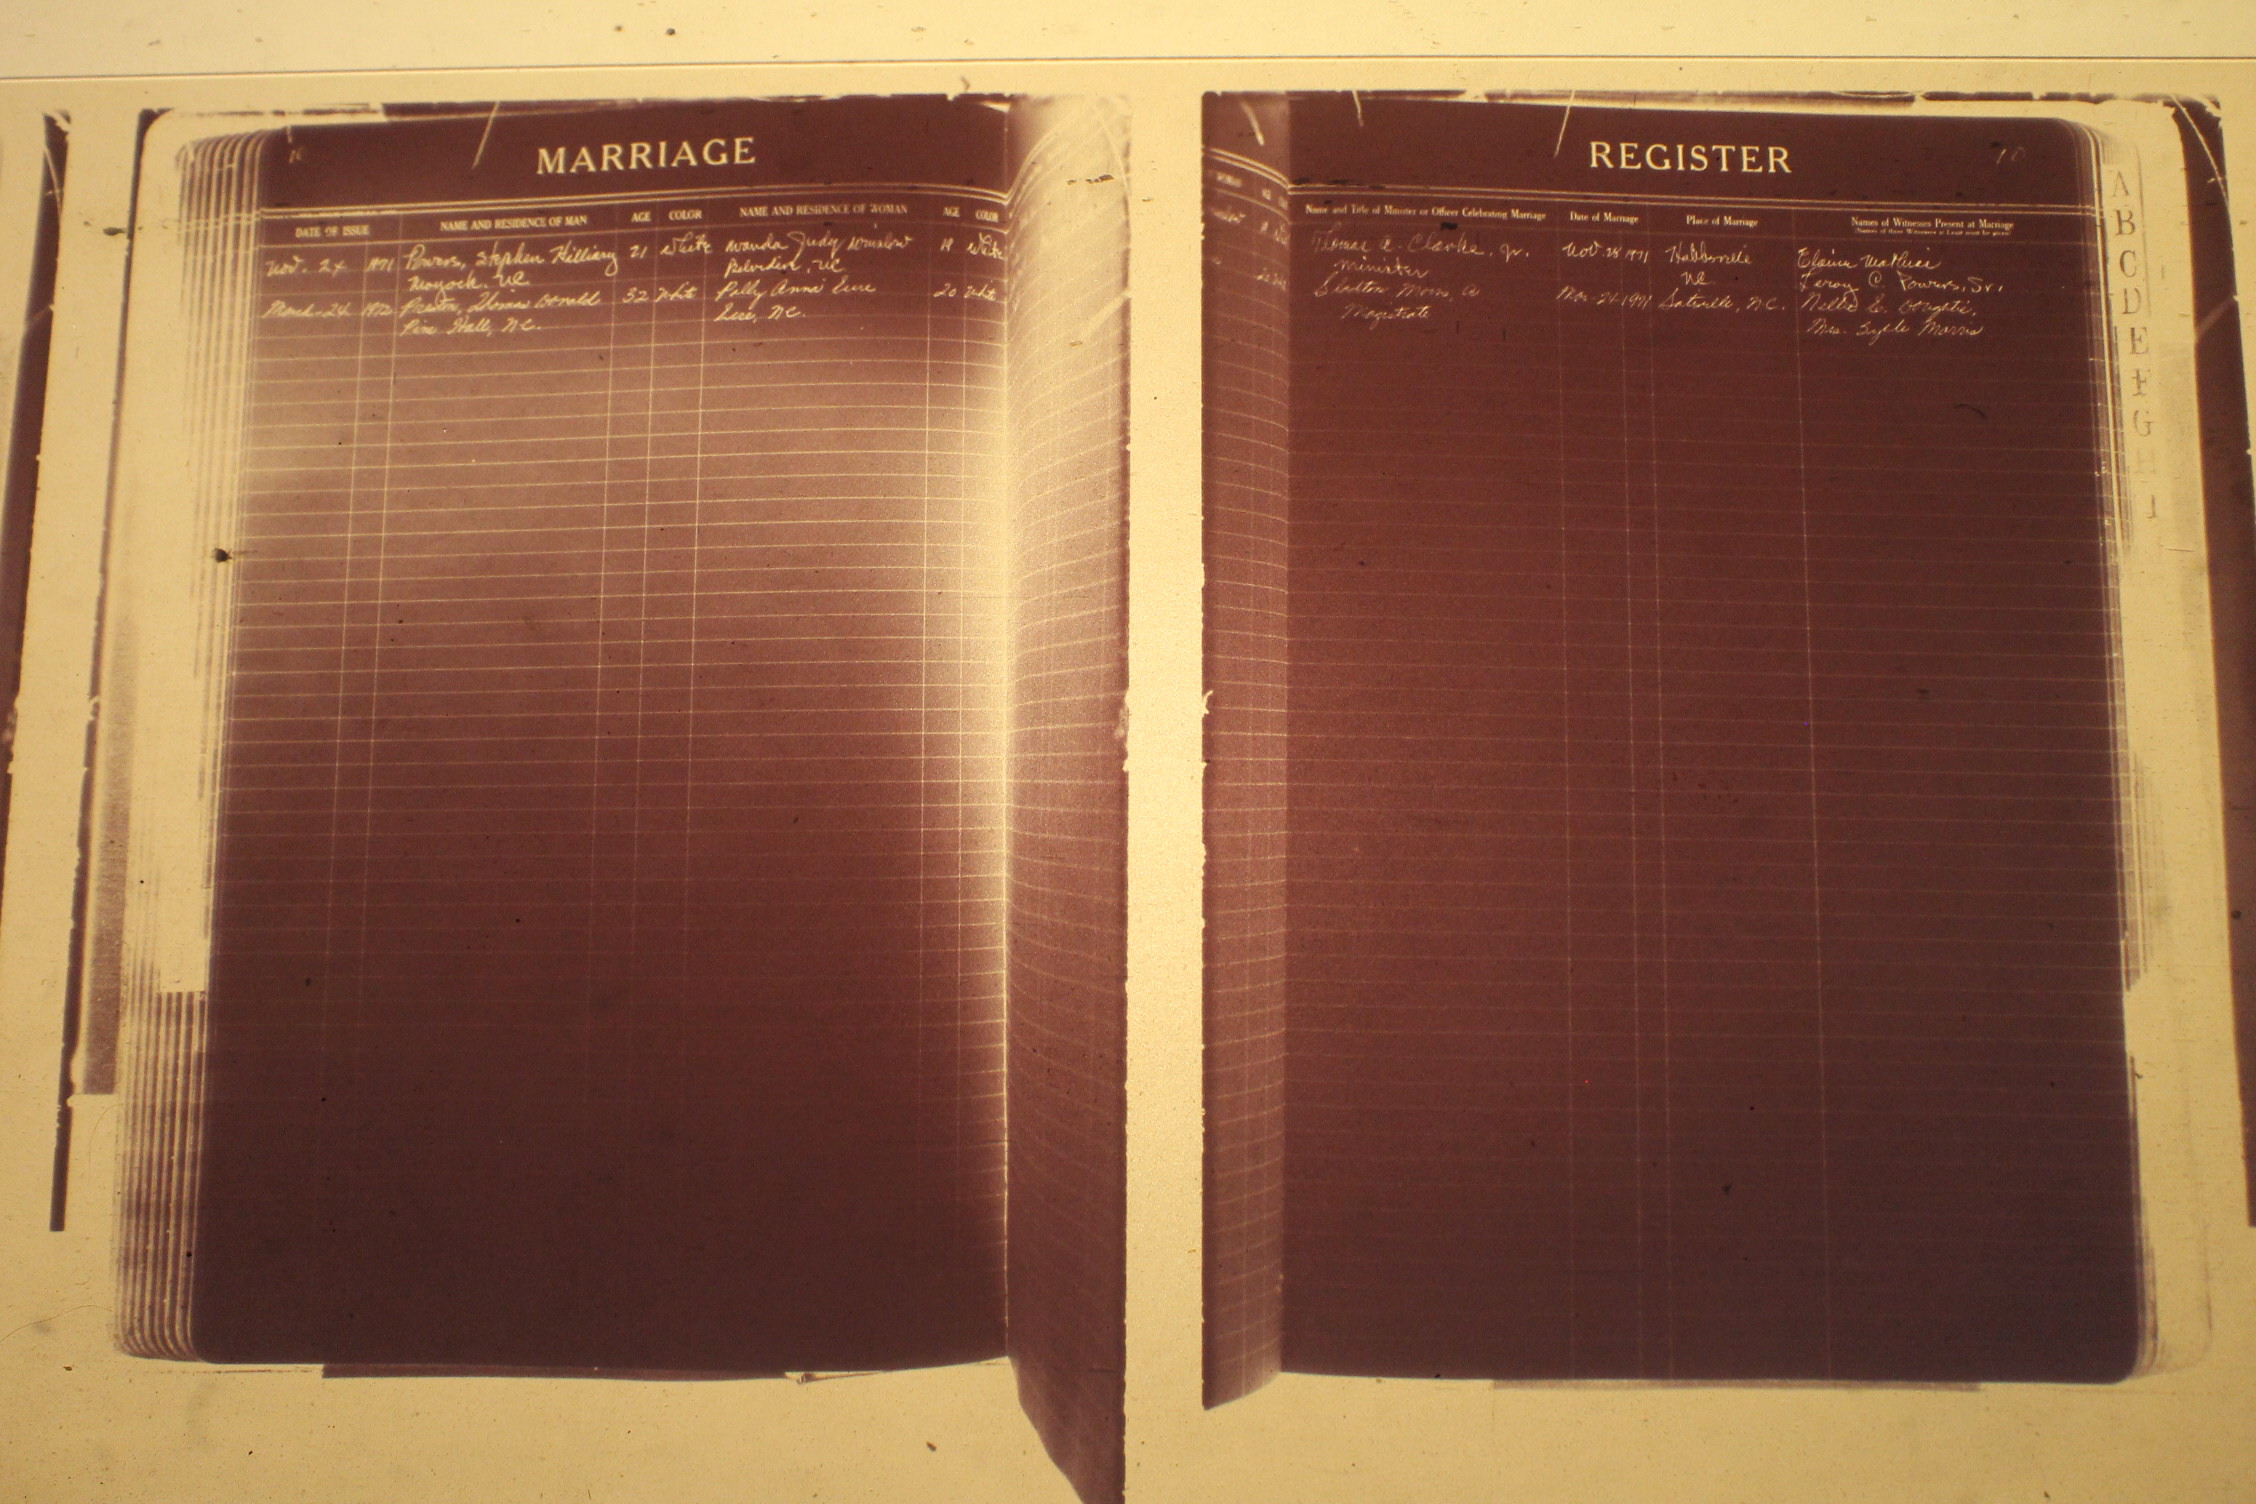 10
MARRIAGE
DATE OF ISSUE NAME AND RESIDENCE OF MAN AGE COLOR NAME AND RESIDENCE OF WOMAN AGE COLOR
Nov. 24 1971 Powers, Stephen Hilliary 21 White Wanda Judy Winslow 19 White
Moyock, NC Belvidere, NC
March 24 1972 Preston, Thomas Donald 32 White Polly Anna Eure 20 White
Pine Hall, NC. Eure, NC.
REGISTER
10
Name and Title of Minister or Officer Celebrating Marriage Date of Marriage Place of Marriage Names of Witnesses Present at Marriage
(Names of three Witnesses at Least must be given)
Thomas A. Clarke, Jr. Nov 28 1971 Hobbsville Elaine Mathias
Minister NC Leroy C. Powers, Sr.
Mar. 24 1971 Gatesville, N.C. Nellie
Magistrate Mrs. Morris
A
B
C
D
E
F
G
H
I